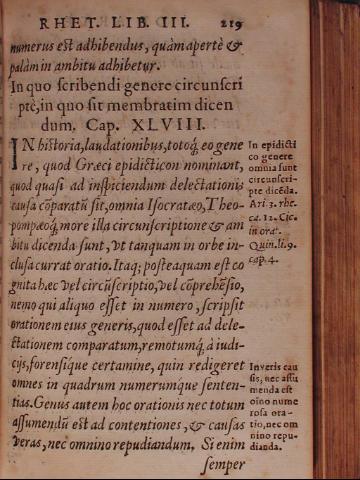 RHET. LIB. III. 219
numerus est adhibendus, quàm apertè &
palàm in ambitu adhibetur.
In quo scribendi genere circunscri
ptè, in quo sit membratim dicen
dum. Cap. XLVIII.
IN historia, laudationibus, totoq́; eo gene
re, quod Græci epidicticon nominant,
quod quasi ad inspiciendum delectationis
causa cōparatū sit, omnia Isocratæo, Theo-
pompæoq́; more illa circunscriptione & am
bitu dicenda sunt, vt tanquam in orbe in-
clusa currat oratio. Itaq; posteaquam est co
gnita hæc vel circūscriptio, vel cōprehēsio,
nemo qui aliquo esset in numero, scripsit
orationem eius generis, quod esset ad dele-
ctationem comparatum, remotumq́; à iudi-
cijs, forensique certamine, quin redigeret
omnes in quadrum numerunque senten-
tias. Genus autem hoc orationis nec totum
assumendū est ad contentiones, & causas
veras, nec omnino repudiandum. Si enim
semper
In epidicti
co genere
omnia sunt
circunscri-
pte dicēda.
Ari. 3. rhe.
ca. 12. Cic.
in orat.
Quin. li. 9.
cap. 4.
In veris cau
sis, nec assu
menda est
oĩno nume
rosa ora-
tio, nec om
nino repu-
dianda.